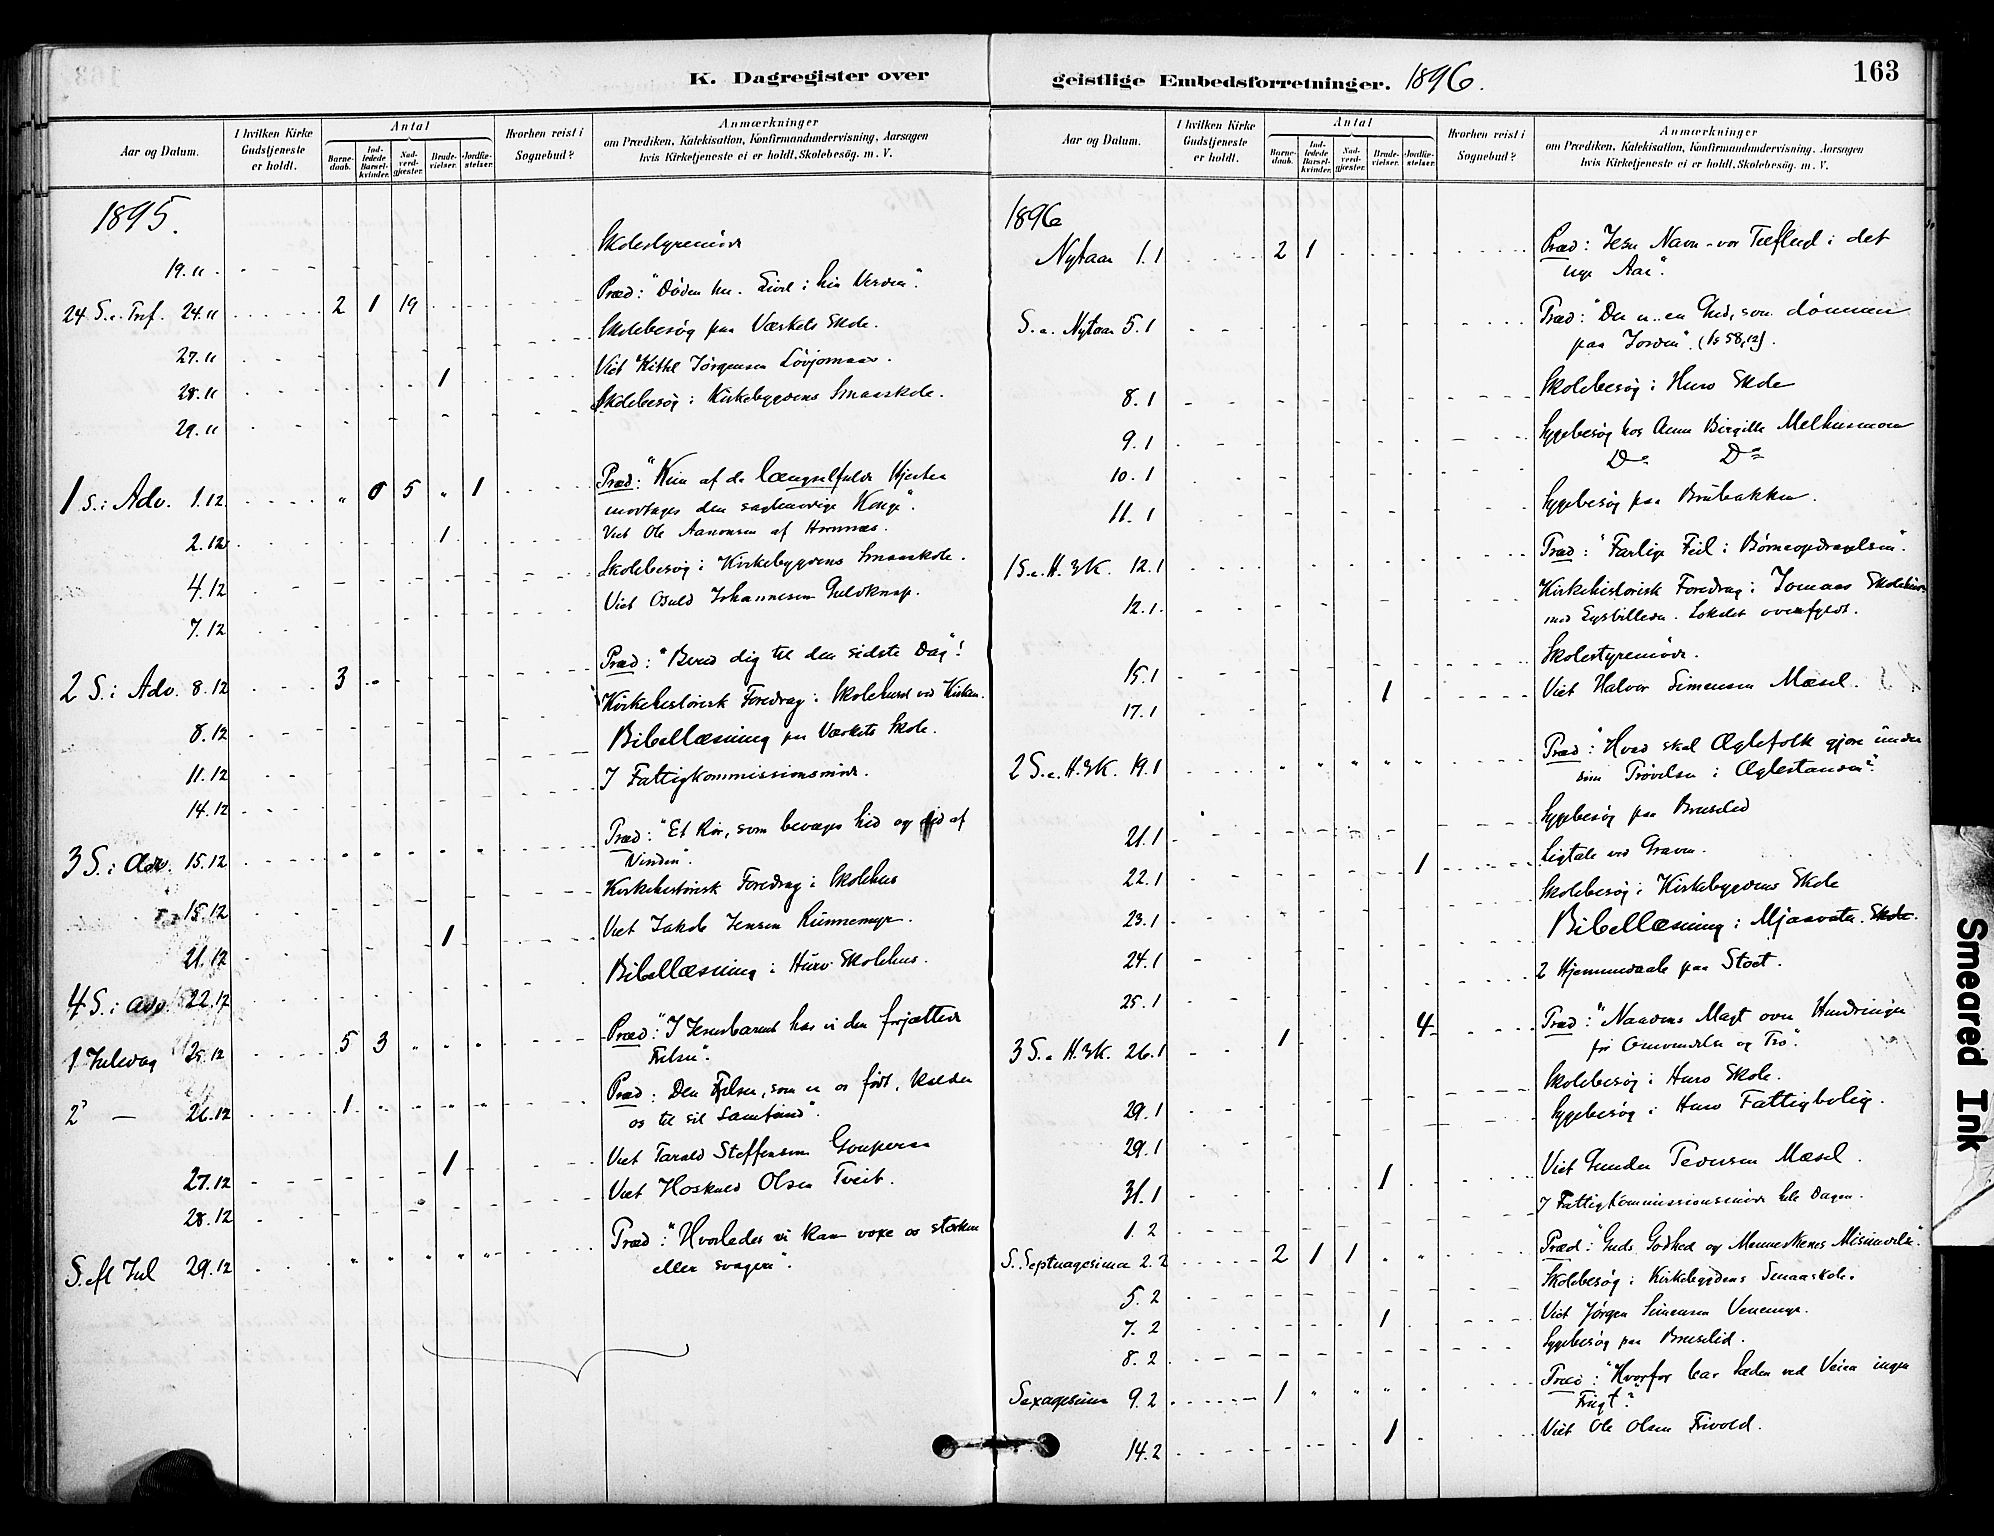 K. Dagregister over
Aar og Datum.
I hvilken Kirke Gudstjeneste er holdt.
Antal
Barne-daab.
Ind-ledede Barsel-kvinder.
Nad-verd-gjæster.
Brude-vielser.
Jordfæ-stelser.
Hvorhen reist i Sognebud?
Anmærkninger
om Prædiken, Katekisation, Konfirmandundervisning, Aarsagen
hvis Kirketjeneste ei er holdt, Skolebesög. m. V.
1895.
19.11 Skolestyremöde
24 S. e. Tref. 24.11 2 1 19 Præd: "Döden her. Livet i hin Verden".
27.11 Skolebesög paa Værkets Skole.
28.11 1 Viet Kittil Jörgensen Lövjomaas.
29.11 Skolebesög i Kirkebygdens Smaaskole.
1 S. i Adv. 1.12 " 0 5 " 1 Præd: "Kun af de længselfulde Hjerter
modtages den sagtmodige Konge".
2.12 1 Viet Ole Aanonsen af Hornnæs.
4.12 Skolebesög i Kirkebygdens Smaaskole.
7.12 Viet Osuld Johannesen Guldknap.
2 S. i Adv. 8.12 3 Præd: "Bered dig til den sidste Dag"!
8.12 Kirkehistorisk Foredrag i Skolehuset ved Kirken.
11.12 Bibellæsning paa Værkets Skole.
14.12 I Fattigkommissionsmöde.
3 S. i Adv. 15.12 " " " " " Præd: "Et Rör, som bevæges hid og did af
Vinden".
15.12 Kirkehistorisk Foredrag i Skolehus
21.12 1 Viet Jakob Jensen Runnemyr.
4 S. i Adv. 22.12 Bibellæsning i Huvo Skolehus.
1 Juledag 25.12 5 3 " " " Præd: "I Jesusbarnet har vi den forjættede
Frelser".
2' — 26.12 1 " " " " Præd: Den Frelser, som er os födt, kalder
os til sit Samfund".
27.12 1 Viet Tarald Steffensen
28.12 Viet Hoskuld Olsen Tveit.
S. ef Jul 29.12 " " " " " Præd: "Hvorledes vi kan voxe os stærken
eller svagen".
geistlige Embedsforretninger. 1896.
163
Aar og Datum.
I hvilken Kirke Gudstjeneste er holdt.
Antal
Barne-daab.
Ind-ledede Barsel-kvinder.
Nad-verd-gjæster.
Brude-vielser.
Jordfæ-stelser.
Hvorhen reist i Sognebud?
Anmærkninger
om Prædiken, Katekisation, Konfirmandundervisning, Aarsagen
hvis Kirketjeneste ei er holdt, Skolebesög. m. V.
1896
Nytaar 1.1 2 1 Præd: Jesu Navn - vor Tilflugt i det
nye Aar".
S. e. Nytaar 5.1 Præd: "Der er en Gud, som dömmer
paa Jorden". (Ps 58,12).
8.1 Skolebesög i Huvo Skole
9.1 Sygebesög hos Anne Birgitte Melhusmoen
10.1 Do Do
11.1 Sygebesög paa Brubakken.
1 S. e. H. 3 K. 12.1 Præd: "Farlige Feil i Börneopdragelsen".
12.1. Kirkehistorisk Foredrag i Jomaas Skolehus
med Lysbilleder. Lokalet overfyldt.
15.1 Skolestyremöde.
17.1 1 Viet Halvor Simensen Mæsel.
2 S. e. H. 3 K. 19.1 " " " " " Præd: "Hvad skal Ægtefolk gjöre under
sine Prövelser i Ægtestanden".
21.1 Sygebesög paa Bruselid
22.1 1 Ligtale ved Graven.
23.1 Skolebesög i Kirkebygdens Skole
24.1 Bibellæsning i Mjaavatn Skole.
25.1 2 Hjemmedaab paa Stoet.
3 S. e H. 3 K. 26.1 1 4 Præd: "Naadens Magt over Hindringer
for Omvendelse og Tro".
29.1 Skolebesög i Huvo Skole.
29.1 Sygebesög i Huvo Fattigbolig.
31.1 1 Viet Gunder Pedersen Mæsel.
1.2 I Fattigkommissionsmöde hele Dagen.
S. Septuagesima 2.2 2 1 1 " " Præd: "Guds Godhed og Menneskenes Misundelse".
5.2 Skolebesög i Kirkebygdens Smaaskole.
7.2 1 Viet Jörgen Simensen Venemyr.
8.2 Sygebesög paa Bruselid.
Sexagesima 9.2 1 " " " " Præd: "Hvorfor bar Sæden ved Veien ingen
Frugt?"
14.2 1 Viet Ole Olsen Frivold.
Smeared Ink